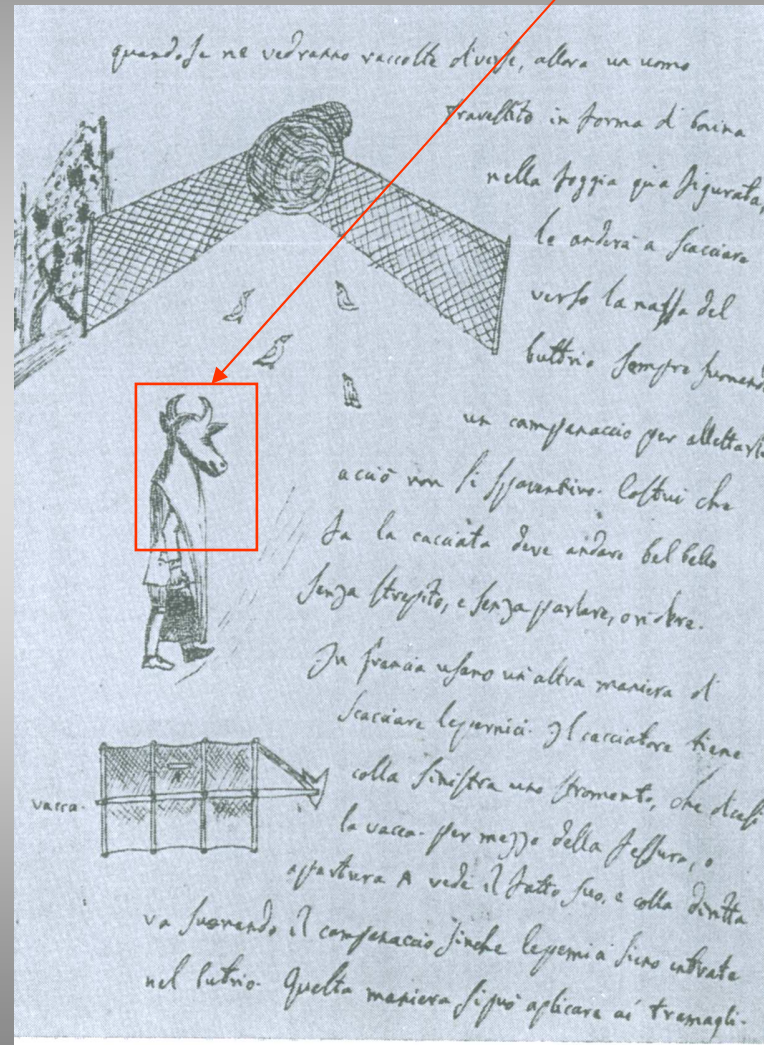 quando se ne vedranno raccolte diverse, allora un uomo
travestito in forma di bovina
nella foggia qua figurata,
le anderà a scacciare
verso la nassa del
buttrio sempre suonando
un campanaccio per allettarle
acciò non si spaventino. Costui che
fa la cacciata deve andare bel bello
senza strepito, e senza parlare, o ridere.
In francia usano un'altra maniera di
scacciare le pernici. Il cacciatore tiene
colla sinistra uno stromento, che dicesi
la vacca. per mezzo della fessura, o
apertura A vede il fatto suo, e colla diritta
vacca.
va suonando il campanaccio finche le pernici sieno entrate
nel butrio. Questa maniera si può aplicare ai tramagli.